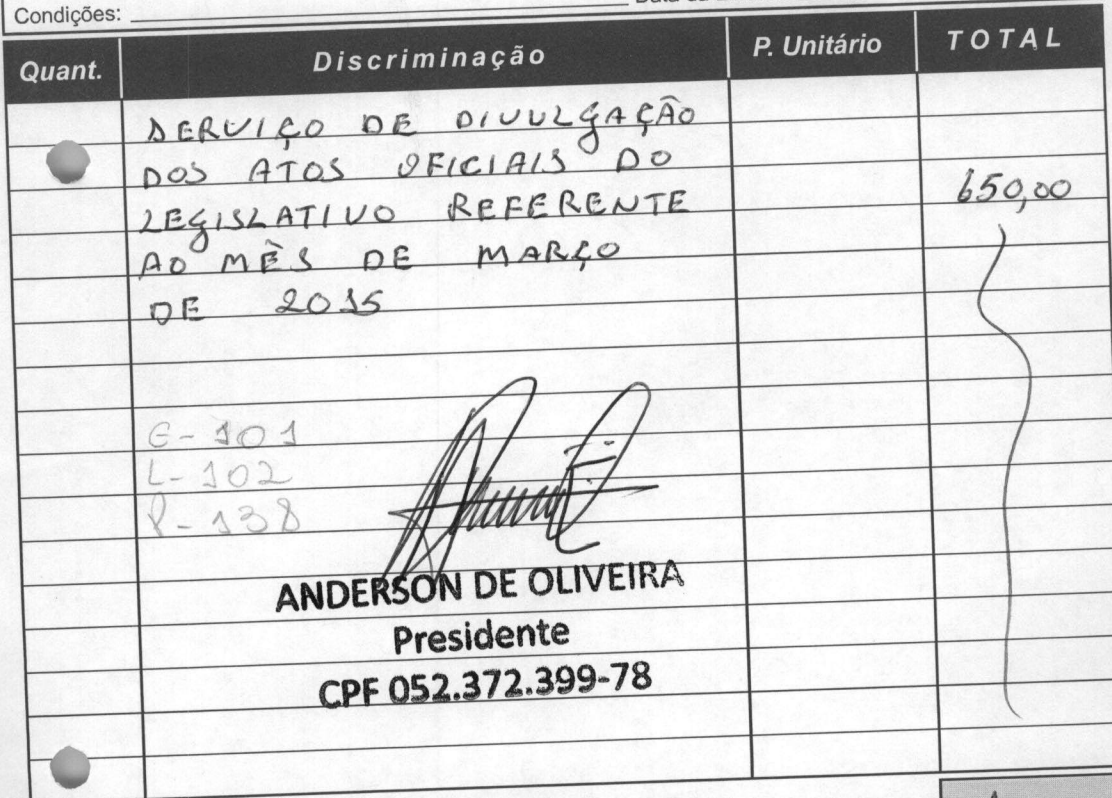 Condições:
Quant. Discriminação P. Unitário TOTAL
SERVIÇO DE DIVULGAÇÃO
DOS ATOS OFICIAIS DO
LEGISLATIVO REFERENTE 650,00
AO MÊS DE MARÇO
DE 2015
E-101
L-102
P-138
ANDERSON DE OLIVEIRA
Presidente
CPF 052.372.399-78